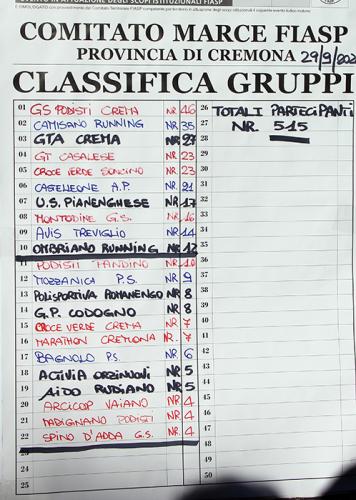 EVENTO IN ATTUAZIONE DEGLI SCOPI ISTITUZIONALI FIASP
COMITATO MARCE FIASP
PROVINCIA DI CREMONA 29/9/202
CLASSIFICA GRUPPI
01 GS PODISTI CREMA NR 46
02 CAMISANO RUNNING NR 35
03 GTA CREMA NR 27
04 GT CASALESE NR 23
05 CROCE VERDE SONCINO NR 23
06 CASTELEONE A.P. NR 21
07 U.S. PIANENGHESE NR 17
08 MONTODINE G.S. NR 16
09 AVIS TREVIGLIO NR 14
10 OMBRIANO RUNNING NR 12
11 PODISTI FANDINO NR 10
12 MOZZANICA P.S. NR 9
13 POLISPORTIVA ROMANENGO NR 8
14 G.P. CODOGNO NR 8
15 CROCE VERDE CREMA NR 7
16 MARATHON CREMONA NR. 7
17 BAGNOLO P.S. NR 6
18 ACTIVIA ORZINUOVI NR 5
19 AIDO RUDIANO NR 5
20 ARCICOP VAIANO NR 4
21 MADIGNANO PODISTI NR. 4
22 SPINO D'ADDA G.S. NR. 4
23
24
25
26 TOTALI PARTECIPANTI
27 NR. 515
28
29
30
31
32
33
34
35
36
37
38
39
40
41
42
43
44
45
46
47
48
49
50